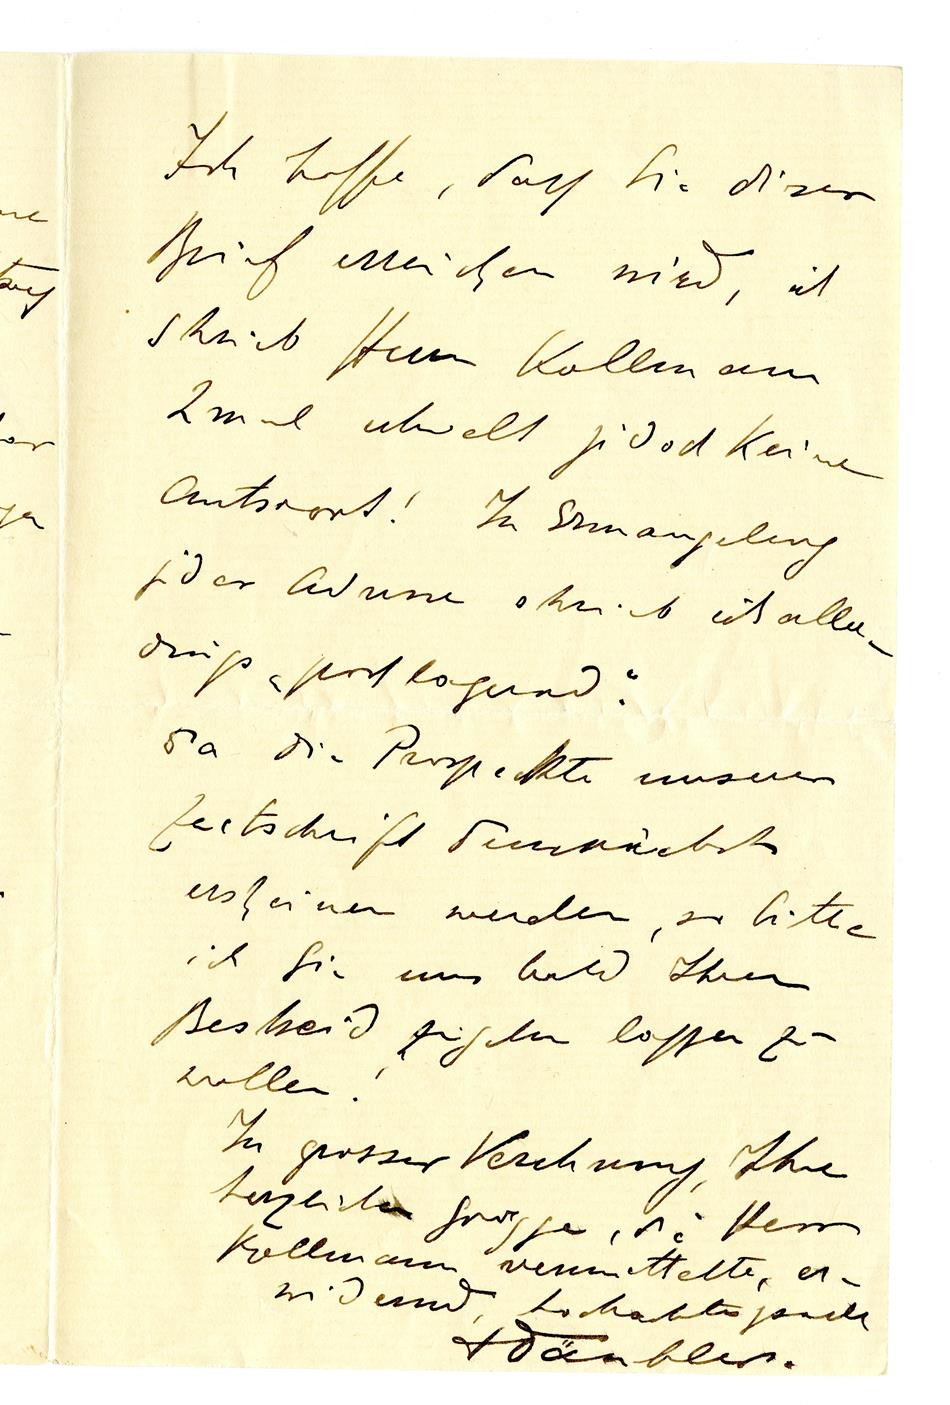 Ich hoffe, dass Sie dieser
Brief erreichen wird, ich
schrieb Herrn Kollmann
2mal erhielt jedoch keine
Antwort! In Ermangelung
jeder Adresse schrieb ich aller-
dings „postlagernd“.
Da die Prospekte unserer
Zeitschrift demnächst
erscheinen werden, so bitte
ich Sie uns bald Ihren
Bescheid zugehn lassen zu
wollen!
In grosser Verehrung, Ihre
herzlichen Grüsse, die Herr
Kollmann vermittelte, er-
widernd, hochachtungsvoll
Däubler.